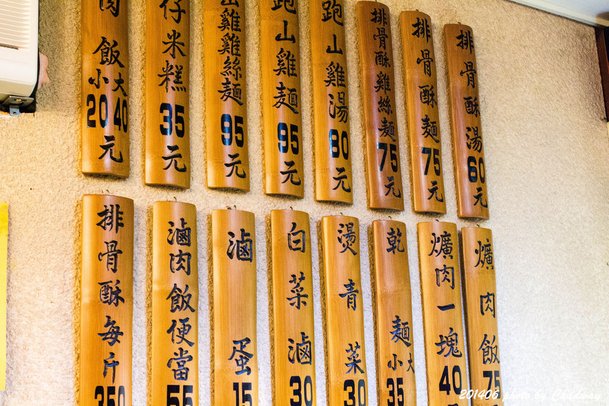 肉飯 小20 大40元
仔米糕35元
跑山雞雞絲麵95元
跑山雞麵95元
跑山雞湯80元
排骨酥雞絲麵75元
排骨酥麵75元
排骨酥湯60元
排骨酥每斤350
滷肉飯便當55
滷蛋15
白菜滷30
燙青菜30
乾麵 小35 大
爌肉一塊40
爌肉飯75
201406 photo by